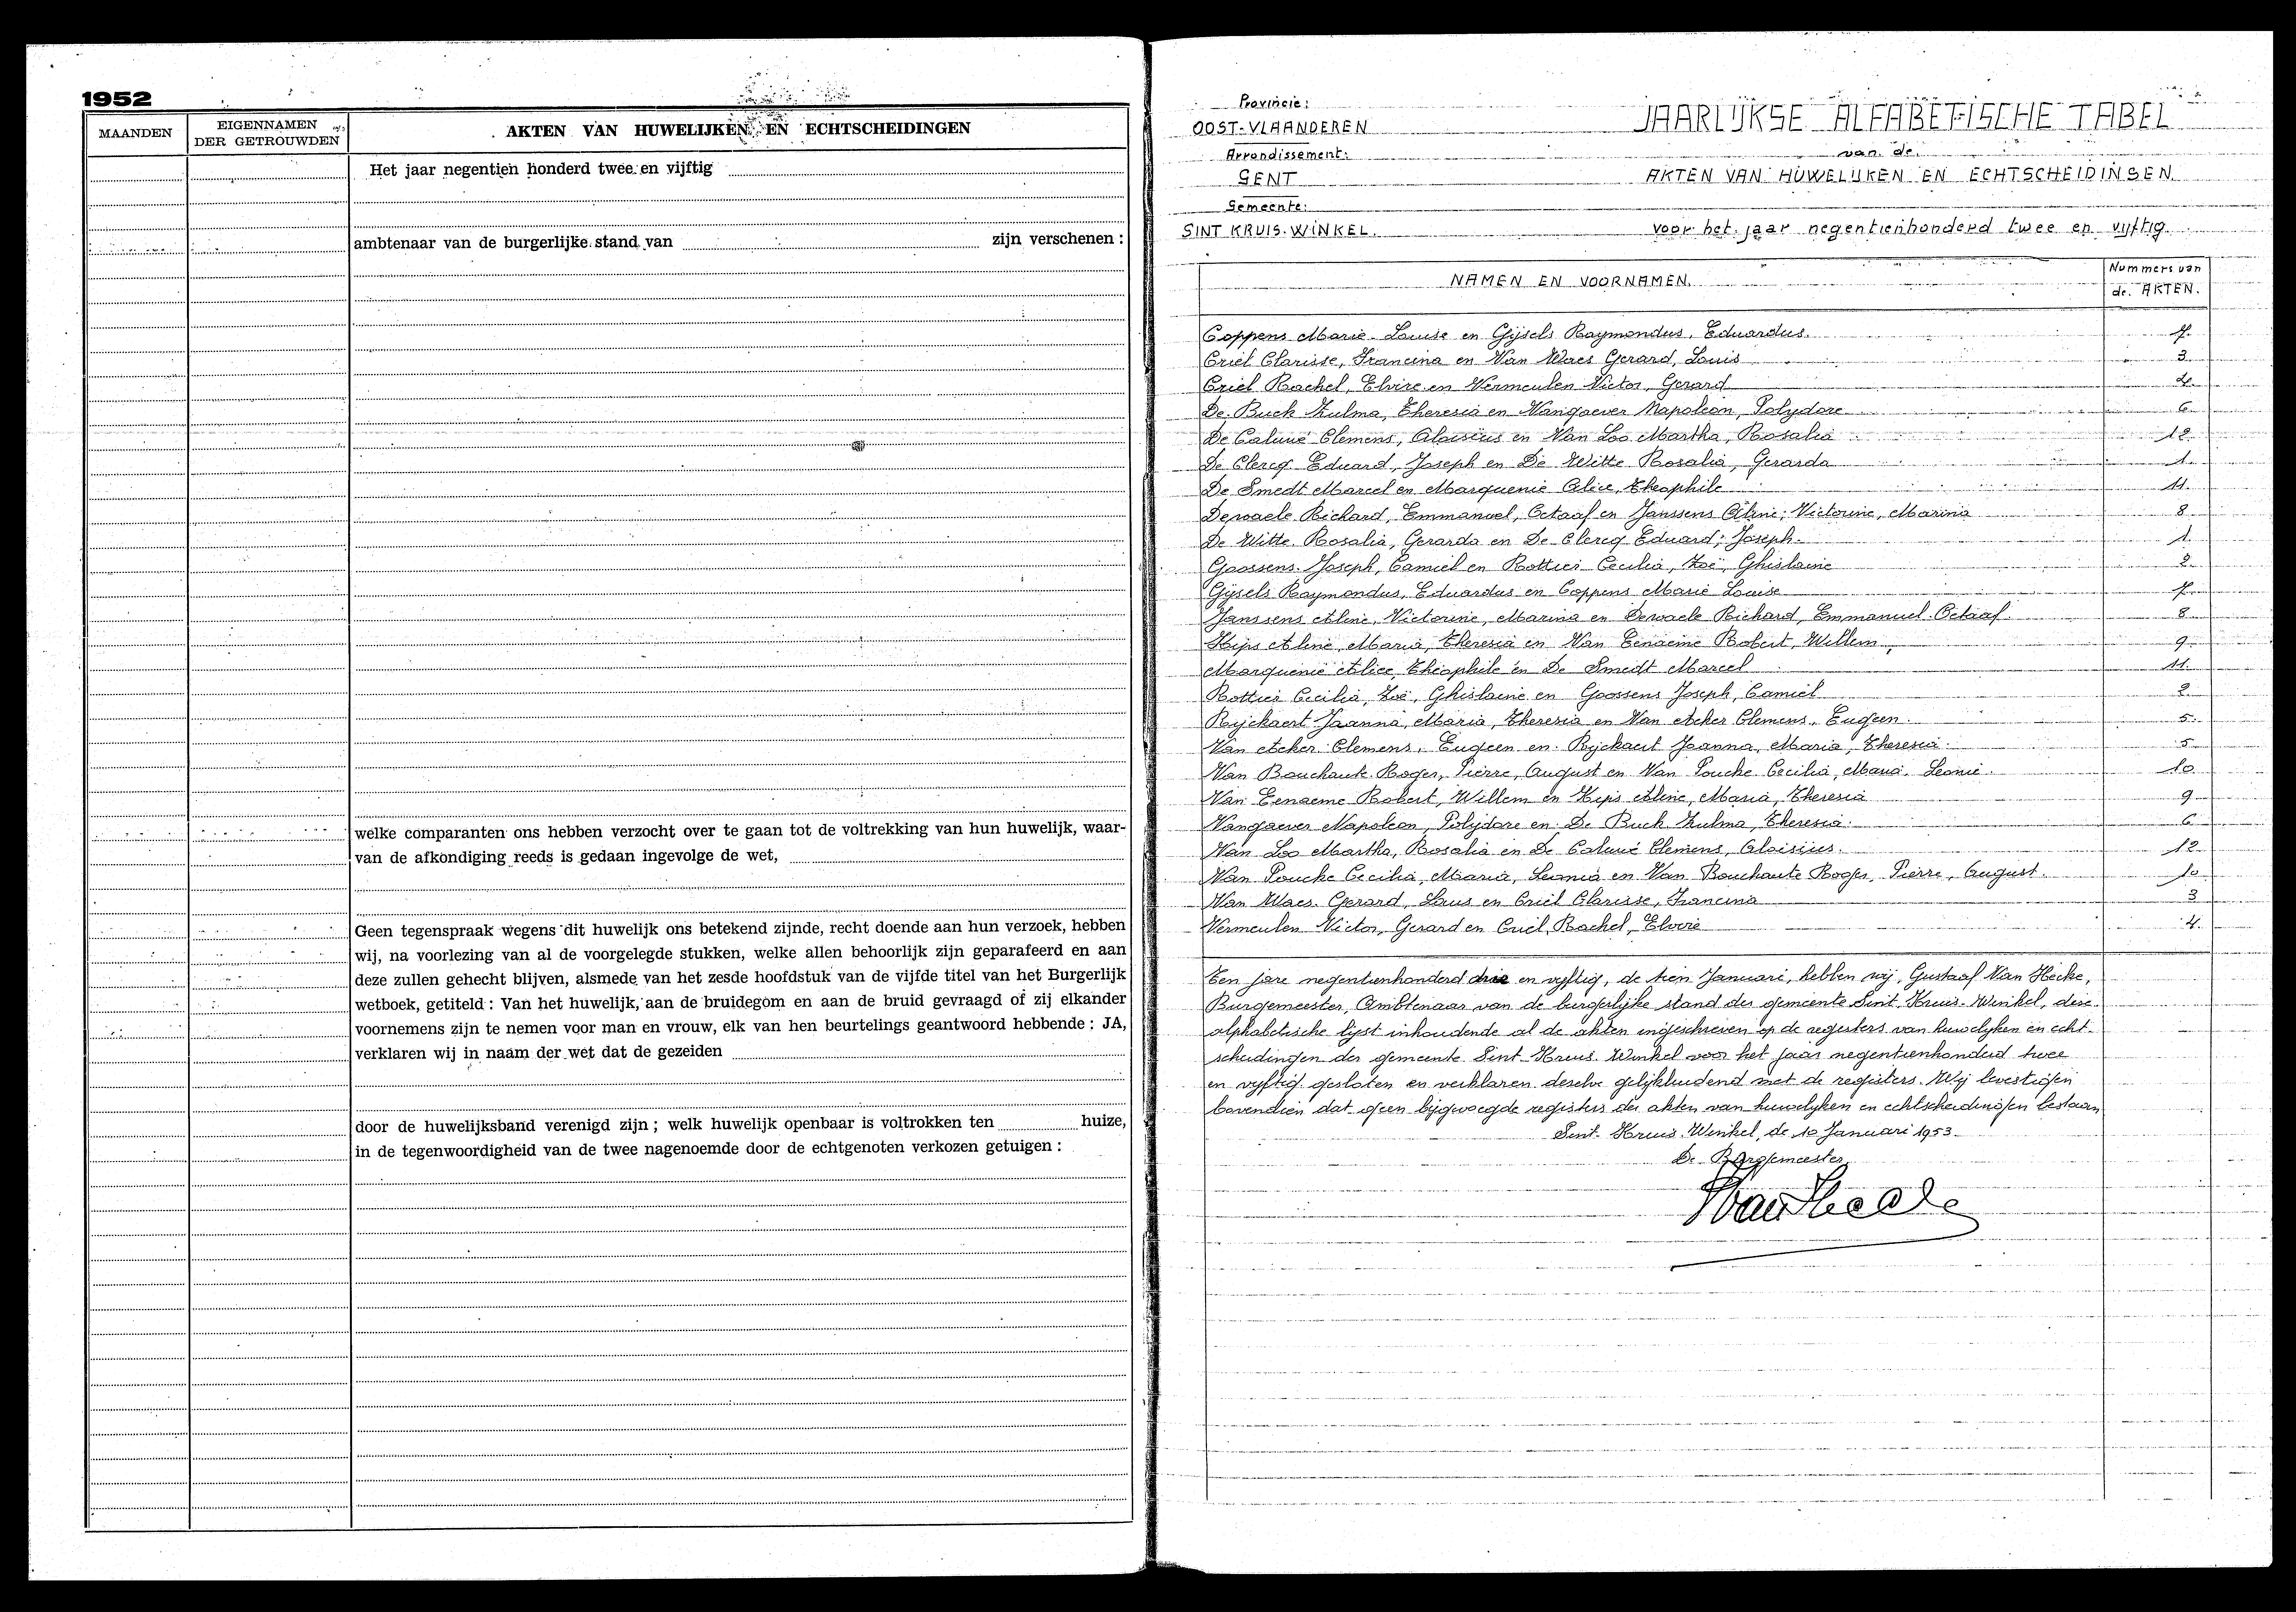 1952
MAANDEN
EIGENNAMEN
DER GETROUWDEN
AKTEN VAN HUWELIJKEN EN ECHTSCHEIDINGEN
Het jaar negentien honderd twee en vijftig
ambtenaar van de burgerlijke stand van zijn verschenen :
welke comparanten ons hebben verzocht over te gaan tot de voltrekking van hun huwelijk, waar-
van de afkondiging reeds is gedaan ingevolge de wet,
Geen tegenspraak wegens dit huwelijk ons betekend zijnde, recht doende aan hun verzoek, hebben
wij, na voorlezing van al de voorgelegde stukken, welke allen behoorlijk zijn geparafeerd en aan
deze zullen gehecht blijven, alsmede van het zesde hoofdstuk van de vijfde titel van het Burgerlijk
wetboek, getiteld : Van het huwelijk, aan de bruidegom en aan de bruid gevraagd of zij elkander
voornemens zijn te nemen voor man en vrouw, elk van hen beurtelings geantwoord hebbende : JA,
verklaren wij in naam der wet dat de gezeiden
door de huwelijksband verenigd zijn ; welk huwelijk openbaar is voltrokken ten huize,
in de tegenwoordigheid van de twee nagenoemde door de echtgenoten verkozen getuigen :
Provincie:
OOST-VLAANDEREN
Arrondissement:
GENT
Gemeente:
SINT KRUIS-WINKEL.
JAARLIJKSE ALFABETISCHE TABEL
van de
AKTEN VAN HUWELIJKEN EN ECHTSCHEIDINGEN
voor het jaar negentienhonderd twee en vijftig
NAMEN EN VOORNAMEN. Nummers van de AKTEN.
Coppens Marie-Louise en Gijsels Raymondus, Eduardus. 7
Criel Clarisse, Francina en Van Waes Gerard, Louis 3
Criel Rachel, Elvire en Vermeulen Victor, Gerard 4
De Buck Zulma, Theresia en Vangaever Napoleon, Polydore 6
De Caluwé Clemens, Aloisius en Van Loo Martha, Rosalia 12
De Clercq Eduard, Joseph en De Witte Rosalia, Gerarda 1
De Smedt Marcel en Marquenie Alice, Theophile 11
Dewaele Richard, Emmanuel, Octaaf en Janssens Aline, Victorine, Marina 8
De Witte Rosalia, Gerarda en De Clercq Eduard, Joseph 1
Goossens Joseph, Camiel en Rottier Cecilia, Zoë, Ghislaine 2
Gijsels Raymondus, Eduardus en Coppens Marie Louise 7
Janssens Aline, Victorine, Marina en Dewaele Richard, Emmanuel Octaaf 8
Kips Aline, Maria, Theresia en Van Eenaeme Robert, Willem 9
Marquenie Alice, Theophile en De Smedt Marcel 11
Rottier Cecilia, Zoë, Ghislaine en Goossens Joseph, Camiel 2
Ryckaert Joanna, Maria, Theresia en Van Acker Clemens, Eugeen 5
Van Acker Clemens, Eugeen en Ryckaert Joanna, Maria, Theresia 5
Van Bouchaute Roger, Pierre, August en Van Poucke Cecilia, Maria, Leonie 10
Van Eenaeme Robert, Willem en Kips Aline, Maria, Theresia 9
Vangaever Napoleon, Polydore en De Buck Zulma, Theresia 6
Van Loo Martha, Rosalia en De Caluwé Clemens, Aloisius 12
Van Poucke Cecilia, Maria, Leonia en Van Bouchaute Roger, Pierre, August 10
Van Waes Gerard, Louis en Criel Clarisse, Francina 3
Vermeulen Victor, Gerard en Criel Rachel, Elvire 4
Ten jare negentienhonderd drie en vyftig, de tien Januari, hebben wij, Gustaaf Van Hecke,
Burgemeester, Ambtenaar van de burgerlijke stand der gemeente Sint-Kruis-Winkel, deze
alphabetische lijst inhoudende al de akten ingeschreven op de registers van huwelyken en echt-
scheidingen der gemeente Sint-Kruis-Winkel voor het jaar negentienhonderd twee
en vyftig gesloten en verklaren deselve gelijkluidend met de registers. Wij bevestigen
bovendien dat geen bijgevoegde registers der akten van huwelyken en echtscheidingen bestaan
Sint-Kruis-Winkel, de 10 Januari 1953.
De Burgemeester
Van Hecke